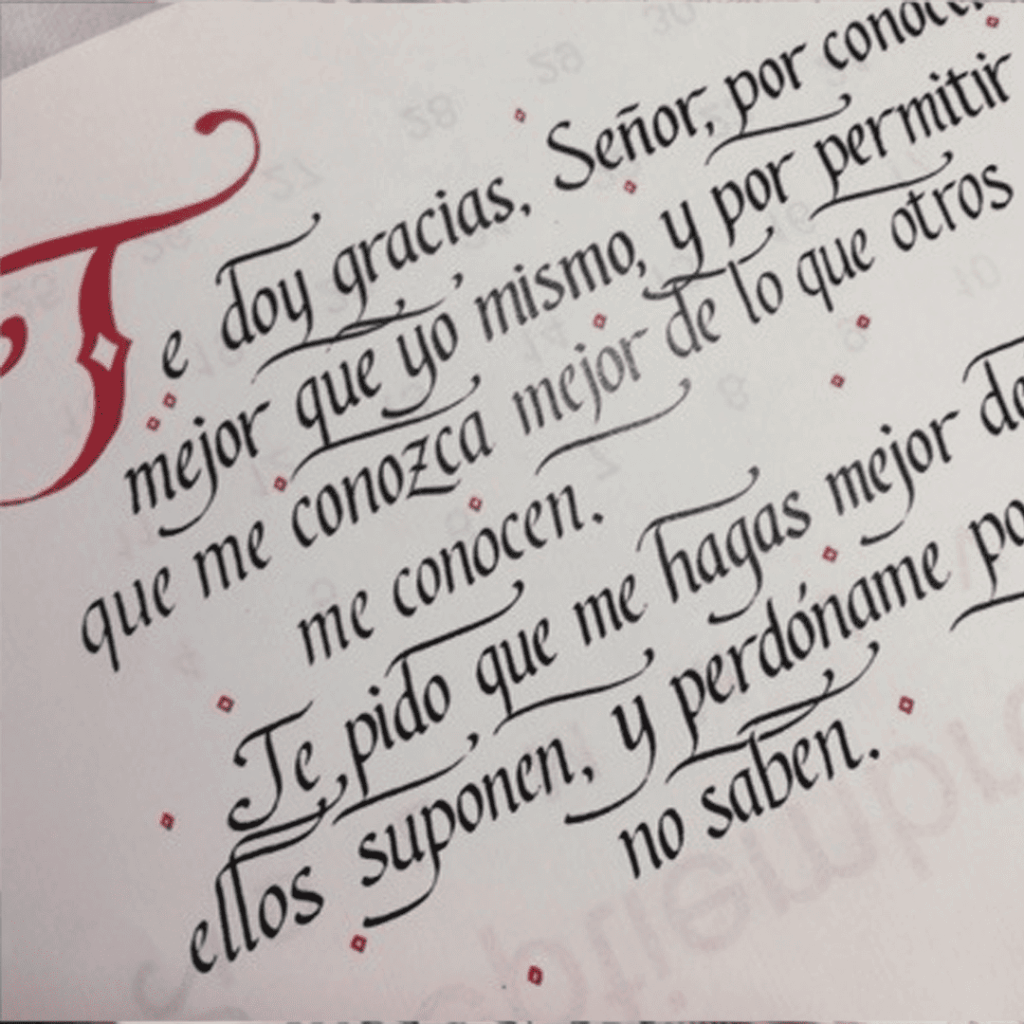 Te doy gracias, Señor, por
mejor que yo mismo, y por permitir
que me conozca mejor de lo que otros
me conocen.
Te pido que me hagas mejor
ellos suponen, y perdóname
no saben.